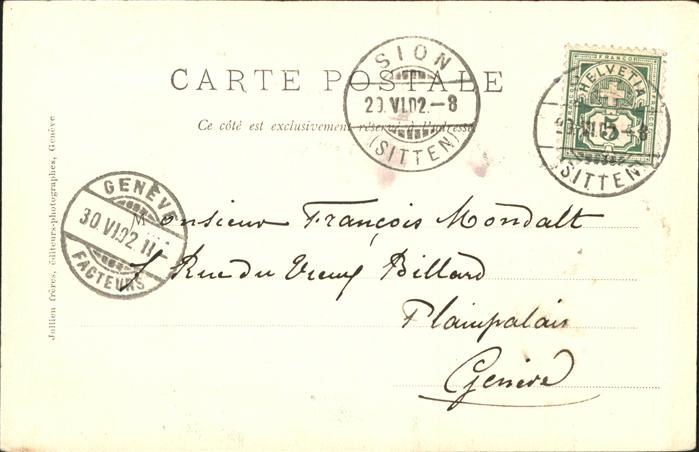 CARTE POSTALE
Ce côté est exclusivement réservé à l'adresse
SION
29.VI.02.-8
(SITTEN)
FRANCO
HELVETIA
5
(SITTEN)
GENÈVE
30.VI.02.11
FACTEURS
Monsieur François Mondalt
Rue du Vieux Billard
Plainpalais
Genève
Jullien frères, éditeurs-photographes, Genève